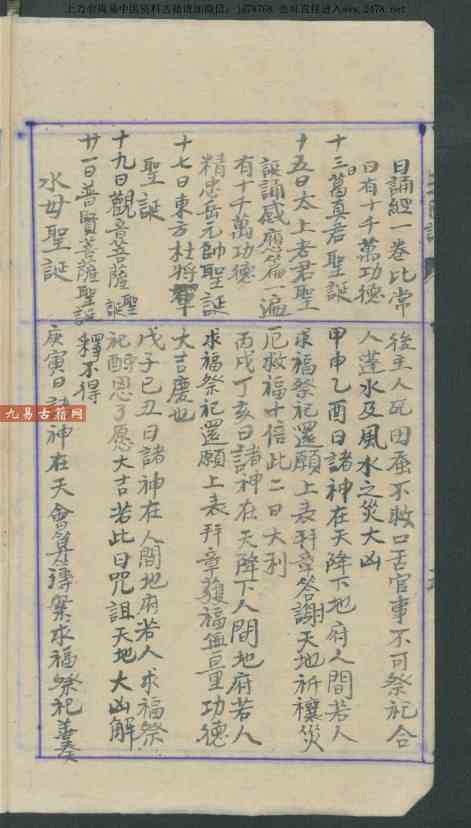 日誦經一卷比常
日有十千萬功德
十三日葛真君聖誕
十五日太上老君聖
誕誦感應篇一遍
有十千萬功德
精忠岳元帥聖誕
十七日東方杜將軍
聖誕
十九日觀音菩薩聖誕
廿一日普賢菩薩聖誕
水母聖誕
後主人瓦田蚕不收口舌官事不可祭祀合
人逢水及風水之災大凶
甲申乙酉日諸神在天降下地府人間若人
求福祭祀還願上表拜章答謝天地祈禳災
厄救福十倍此二日大利
丙戌丁亥日諸神在天降下人間地府若人
求福祭祀還願上表拜章獲福無量功德
大吉慶也
戊子己丑日諸神在人間地府若人求福祭
祀酧恩了愿大吉若此日咒詛天地大凶解
釋不得
庚寅日諸神在天會算簿案求福祭祀善
九易古籍网